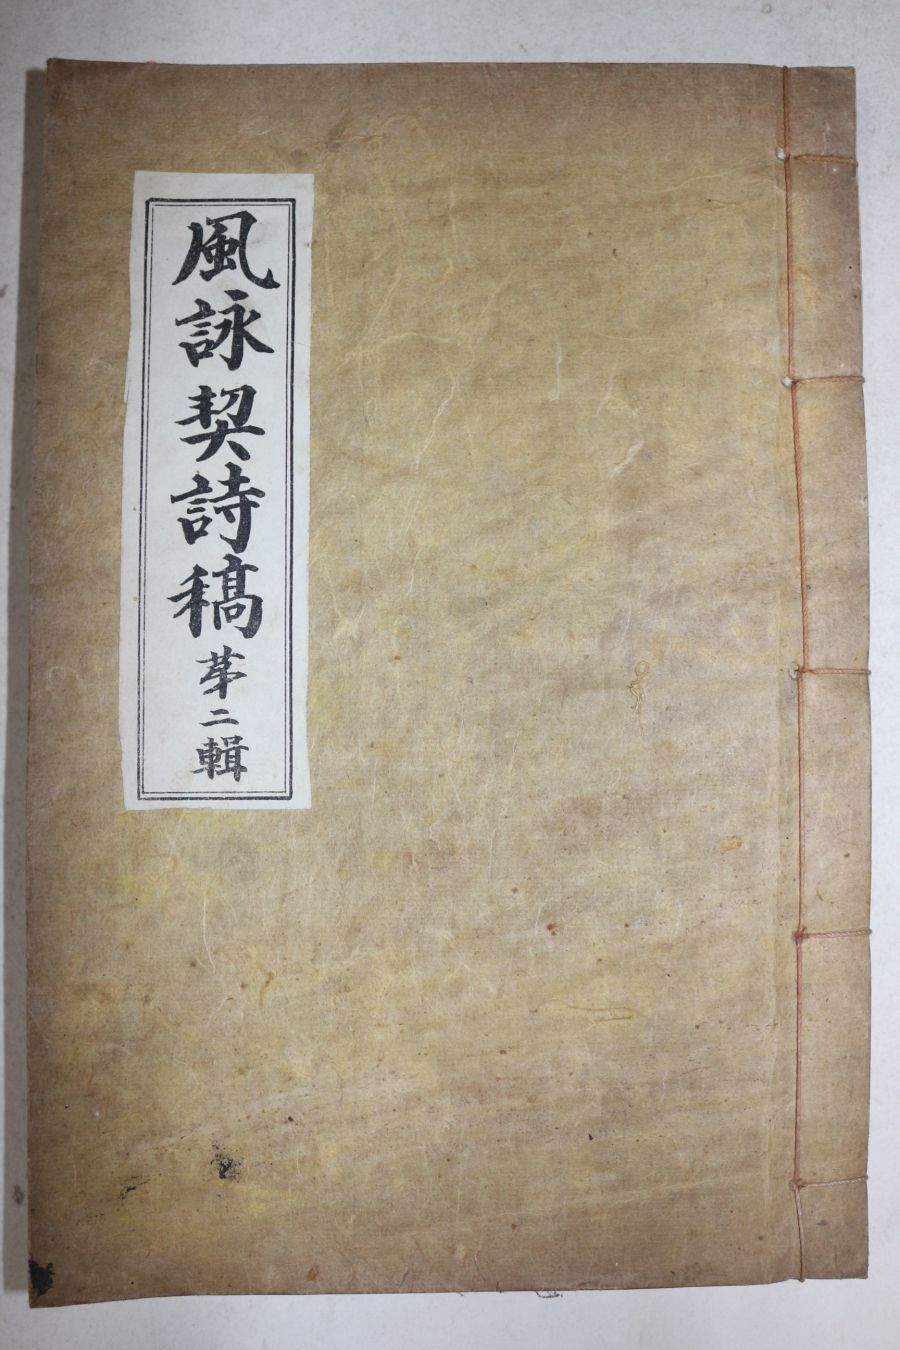 風詠契詩稿 苐二輯